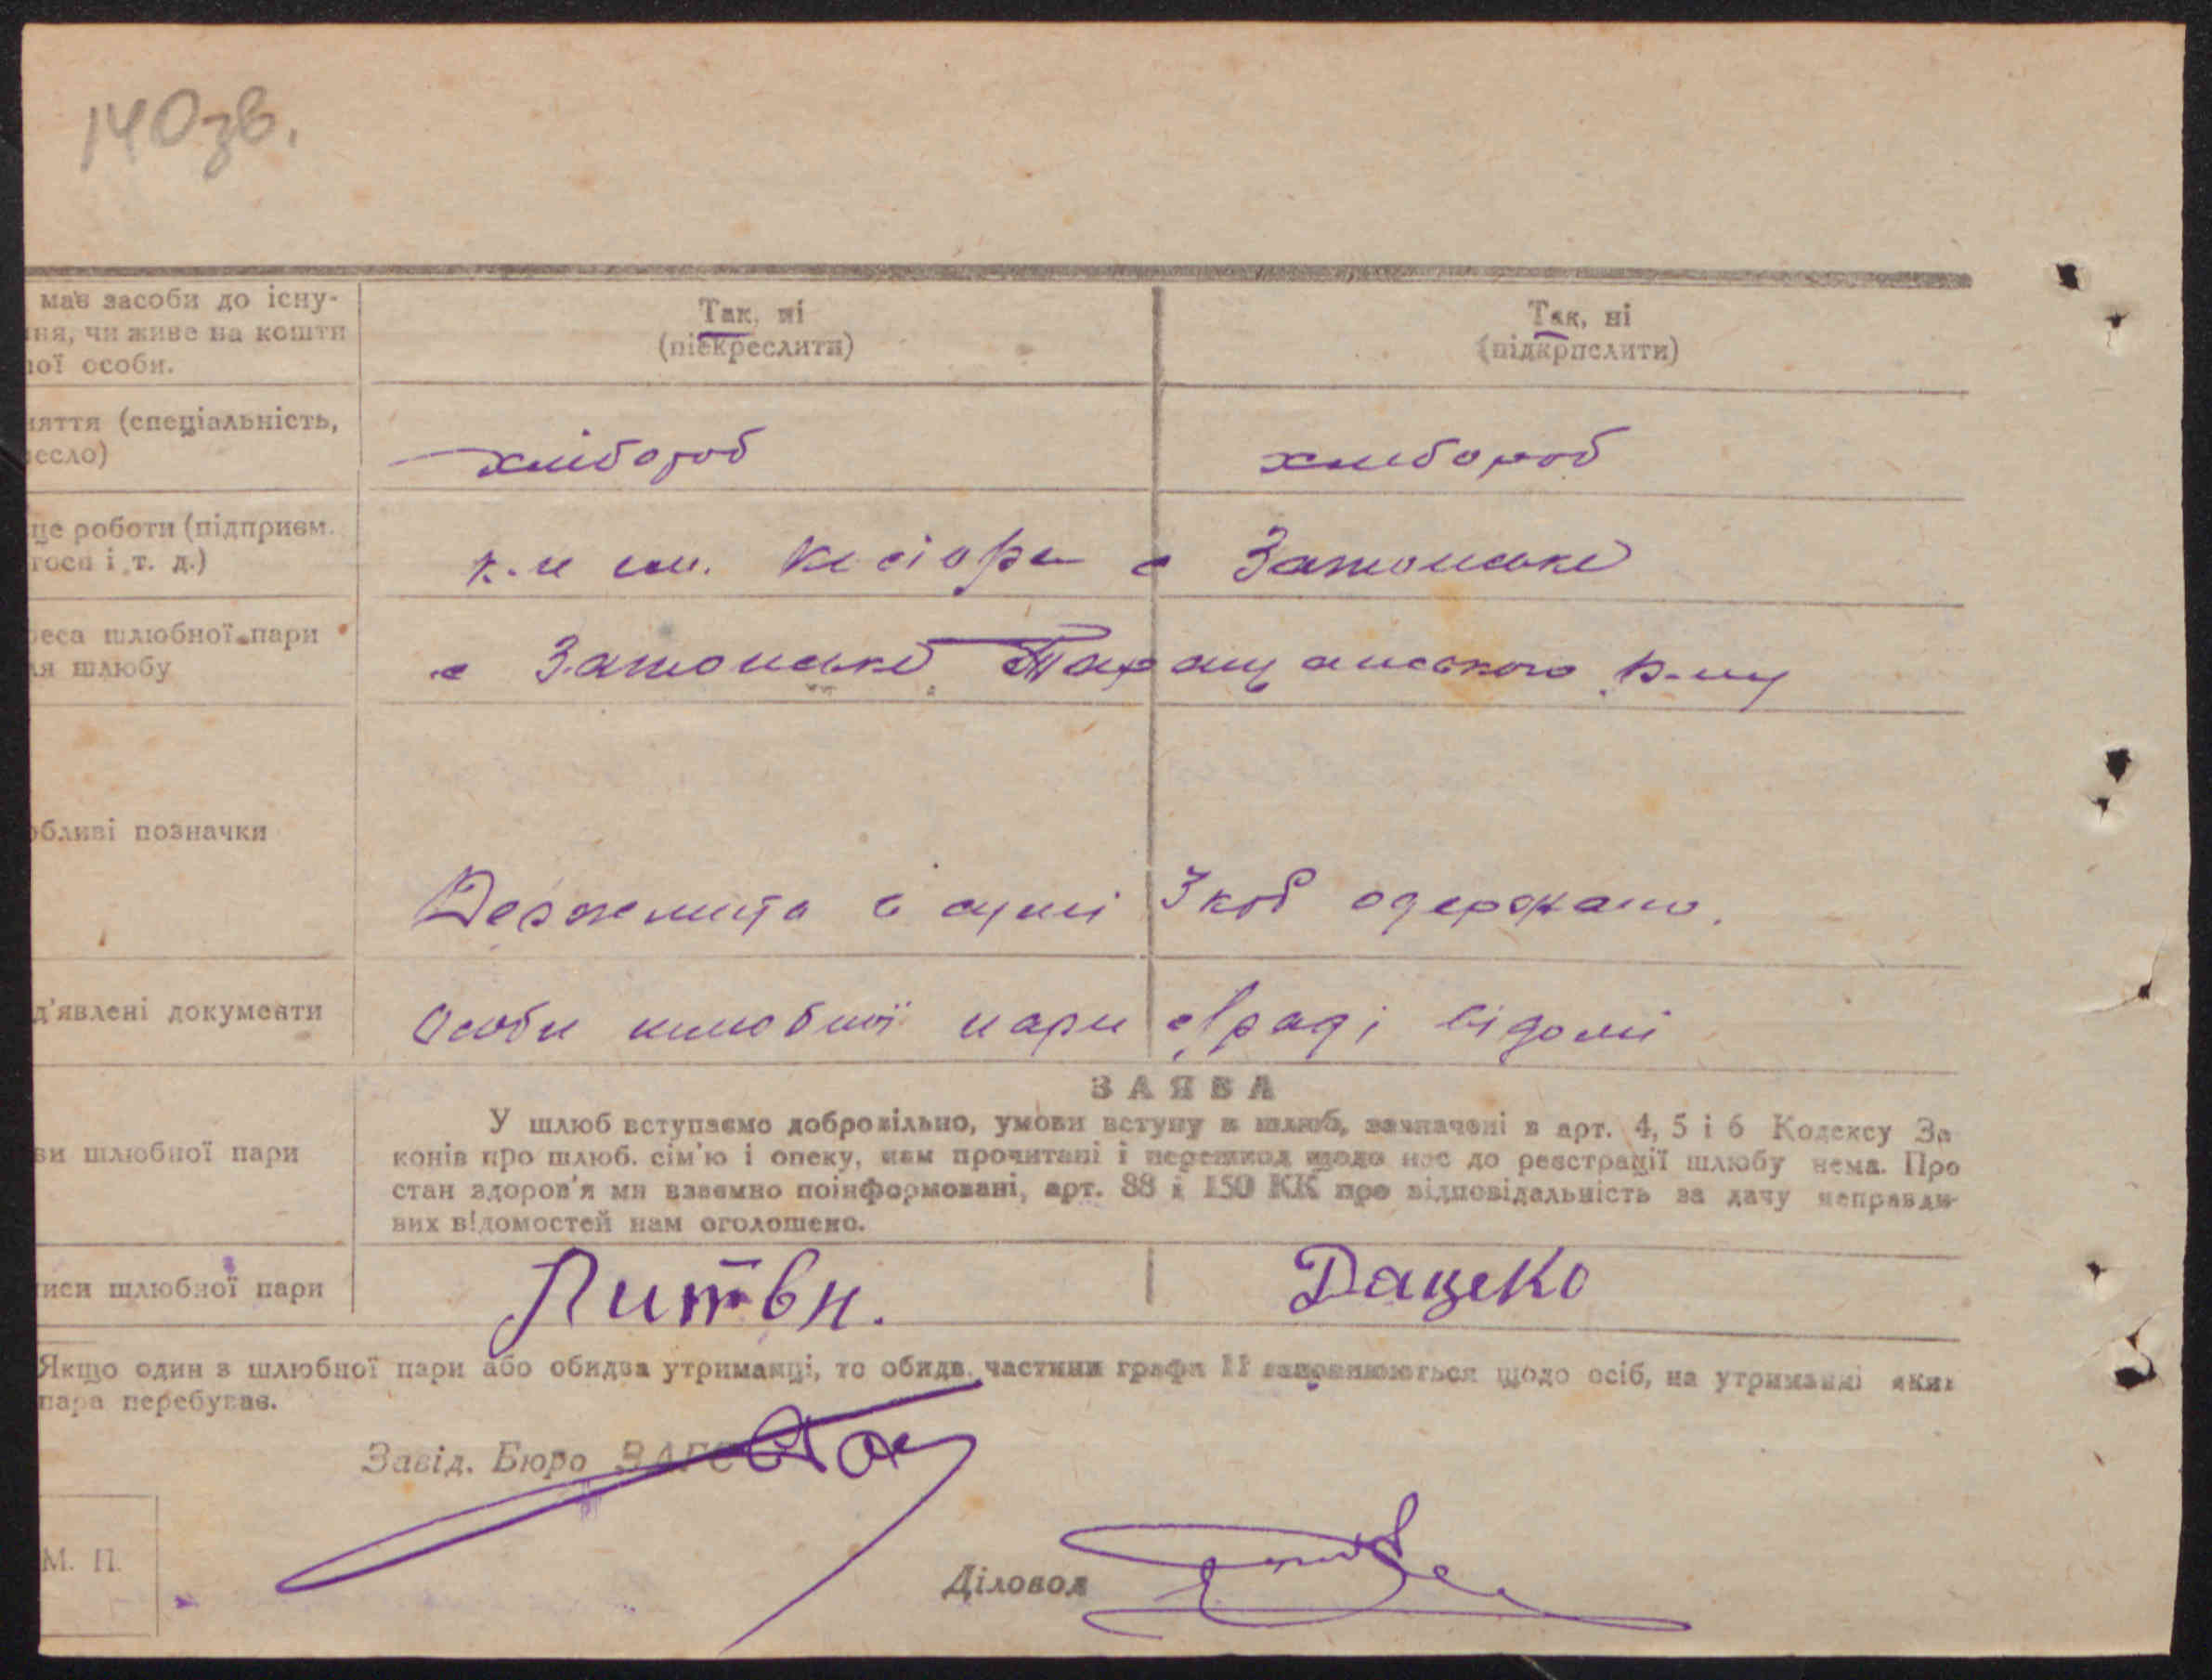 140 зв.
має засоби доісну-
ня, чи живе на кошти
ої особи.
Так, ні
(піекреслити)
Так, ні
(підкрпслити)
няття (спеціальність,
есло)
хлібороб
хлебороб
це роботи (підприєм.
госп і т. д.)
к-п ім. Косіора с Затонське
реса шлюбної пари
ля шлюбу
с Затонське Таращанського р-ну
обливі позначки
Держмита в сумі 3 коб одержано.
д'явлені документи
Особи шлюбної пари с/раді відомі
ЗАЯВА
ви шлюбної пари
У шлюб вступаємо добровільно, умови вступу в шлюб, зазначені в арт. 4, 5 і 6 Кодексу За
конів про шлюб. сім'ю і опеку, нам прочитані і перешкод щодо нас до реєстрації шлюбу нема. Про
стан здоров'я ми взаємно поінформовані, арт. 88 і 150 КК про відповідальність за дачу неправди-
вих відомостей нам оголошено.
иси шлюбної пари
Литвн.
Дацеко
Якщо один з шлюбної пари або обидва утриманці, то обидв. частини графи 11 заповнюються щодо осіб, на утриманні яких
пара перебуває.
Завід. Бюро ЗАГС
М. П.
Діловод